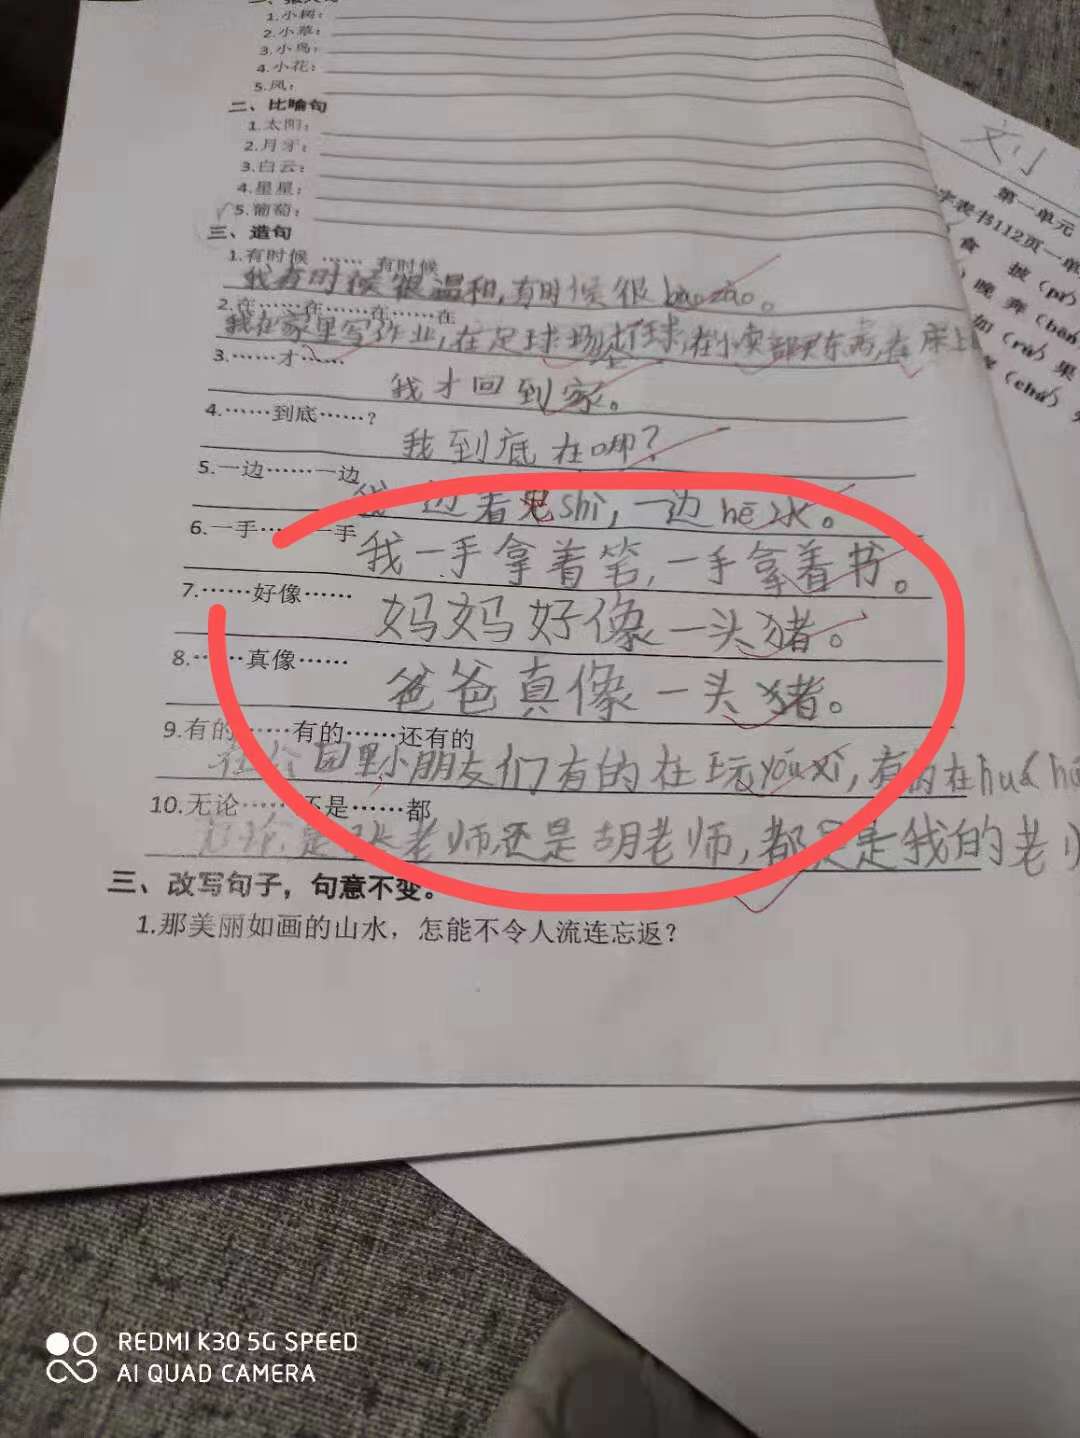 1.小树：
2.小草：
3.小鸟：
4.小花：
5.风：
二、比喻句
1.太阳：
2.月牙：
3.白云：
4.星星：
5.葡萄：
三、造句
1.有时候……有时候
我有时候很温和，有时候很bàozào。
2.在……在……在……在
我在家里写作业，在足球场踢球，在小卖部买东西，在床上
3.……才……
我才回到家。
4.……到底……？
我到底在哪？
5.一边……一边
我一边看电shì，一边hē水。
6.一手……一手
我一手拿着笔，一手拿着书。
7.……好像……
妈妈好像一头猪。
8.……真像……
爸爸真像一头猪。
9.有的……有的……还有的
在公园里小朋友们有的在玩yóuxì，有的在huá
10.无论……还是……都
无论是张老师还是胡老师，都是我的老
三、改写句子，句意不变。
1.那美丽如画的山水，怎能不令人流连忘返？
刘
第一单元
字表书112页一单
食 披（pī）
晚 奔（bēn）
如（rú） 果
（chū）
REDMI K30 5G SPEED
AI QUAD CAMERA